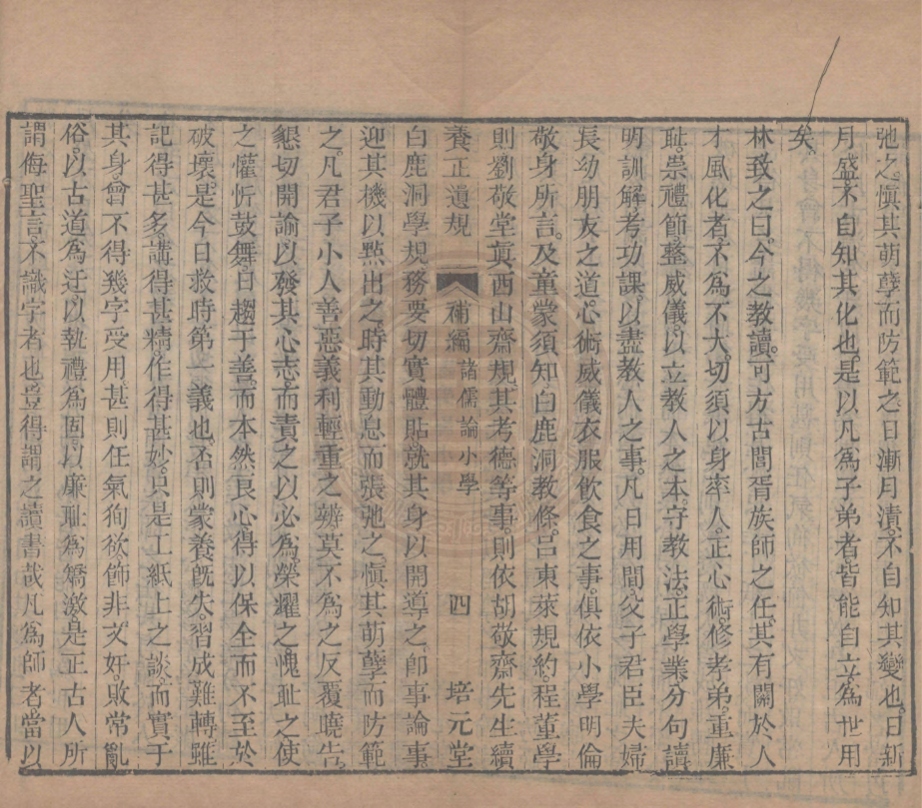 弛之慎其萌孽而防範之日漸月漬不自知其變也日新
月盛不自知其化也是以凡爲子弟者皆能自立爲世用
矣
林致之曰今之教讀可方古閭胥族師之任其有關於人
才風化者不爲不大切須以身率人正心術修孝弟重廉
耻崇禮節整威儀以立教人之本守教法正學業分句讀
明訓解考功課以盡教人之事凡日用間父子君臣夫婦
長幼朋友之道心術威儀衣服飲食之事俱依小學明倫
敬身所言及童蒙須知白鹿洞教條呂東萊規約程董學
則劉敬堂眞西山齋規其考德等事則依胡敬齋先生續
養正遺規 補編 諸儒論小學 四 培元堂
白鹿洞學規務要切實體貼就其身以開導之卽事論事
迎其機以㸃出之時其動息而張弛之慎其萌孽而防範
之凡君子小人善惡義利輕重之辨莫不爲之反覆曉告
懇切開諭以發其心志而責之以必爲榮耀之愧耻之使
之懽忻鼓舞日趨于善而本然良心得以保全而不至於
破壞是今日救時第一義也否則蒙養旣失習成難轉雖
記得甚多講得甚精作得甚妙只是工紙上之談而實于
其身曾不得幾字受用甚則任氣狥欲飾非文奸敗常亂
俗以古道爲迂以執禮爲固以廉耻爲矯激是正古人所
謂侮聖言不識字者也豈得謂之讀書哉凡爲師者當以